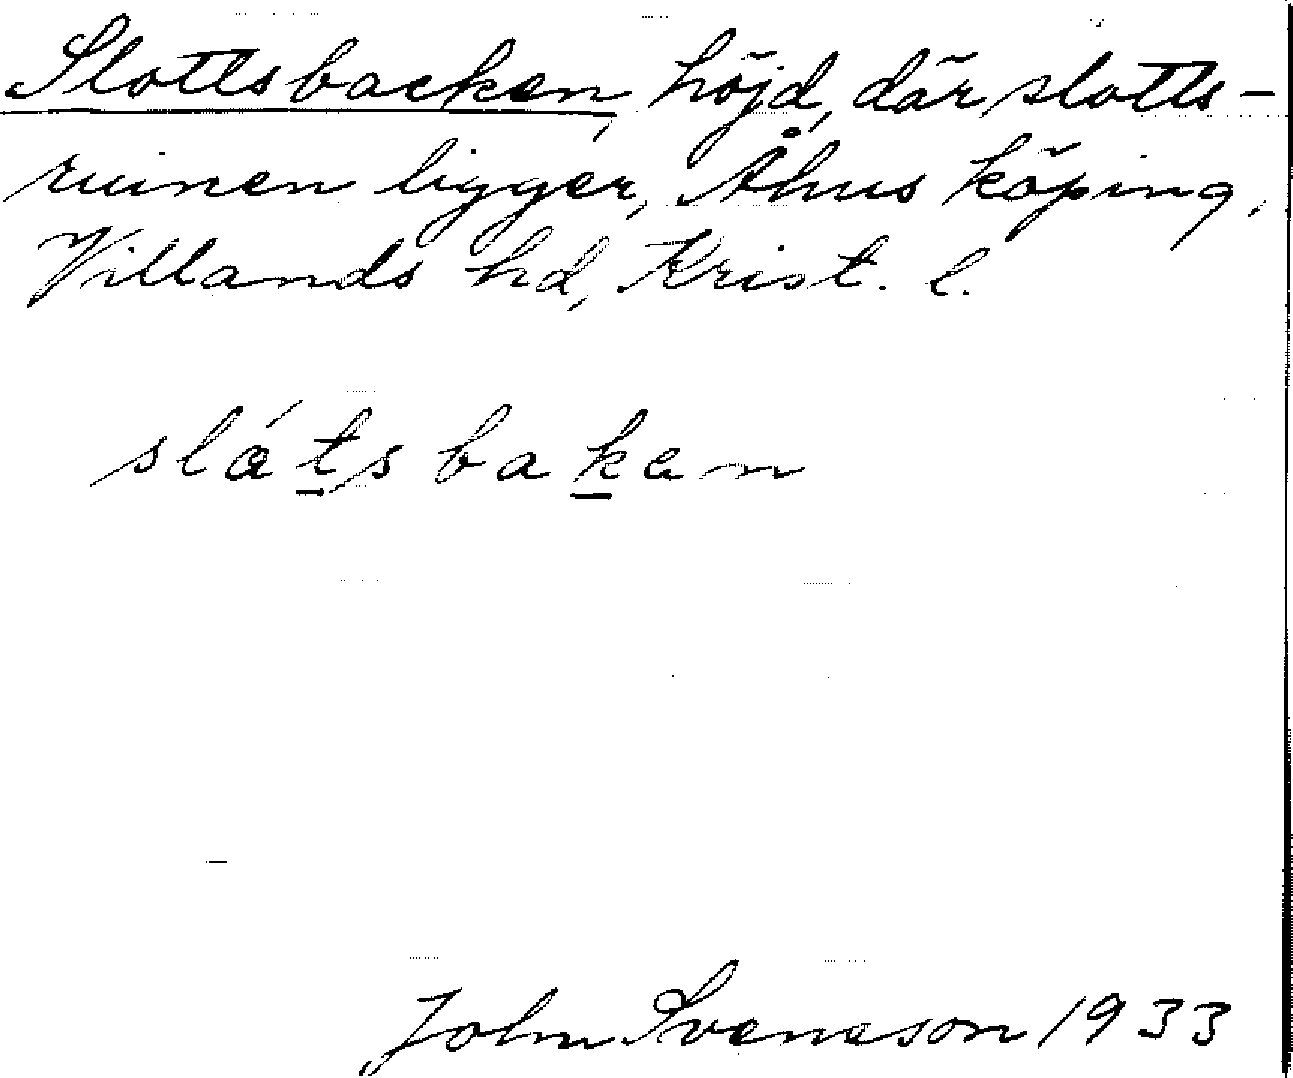 Slottsbacken, höjd, där slotts-
ruinen ligger, Åhus köping,
Villands hd, Krist. l.
slátsbaken
John Svensson 1933